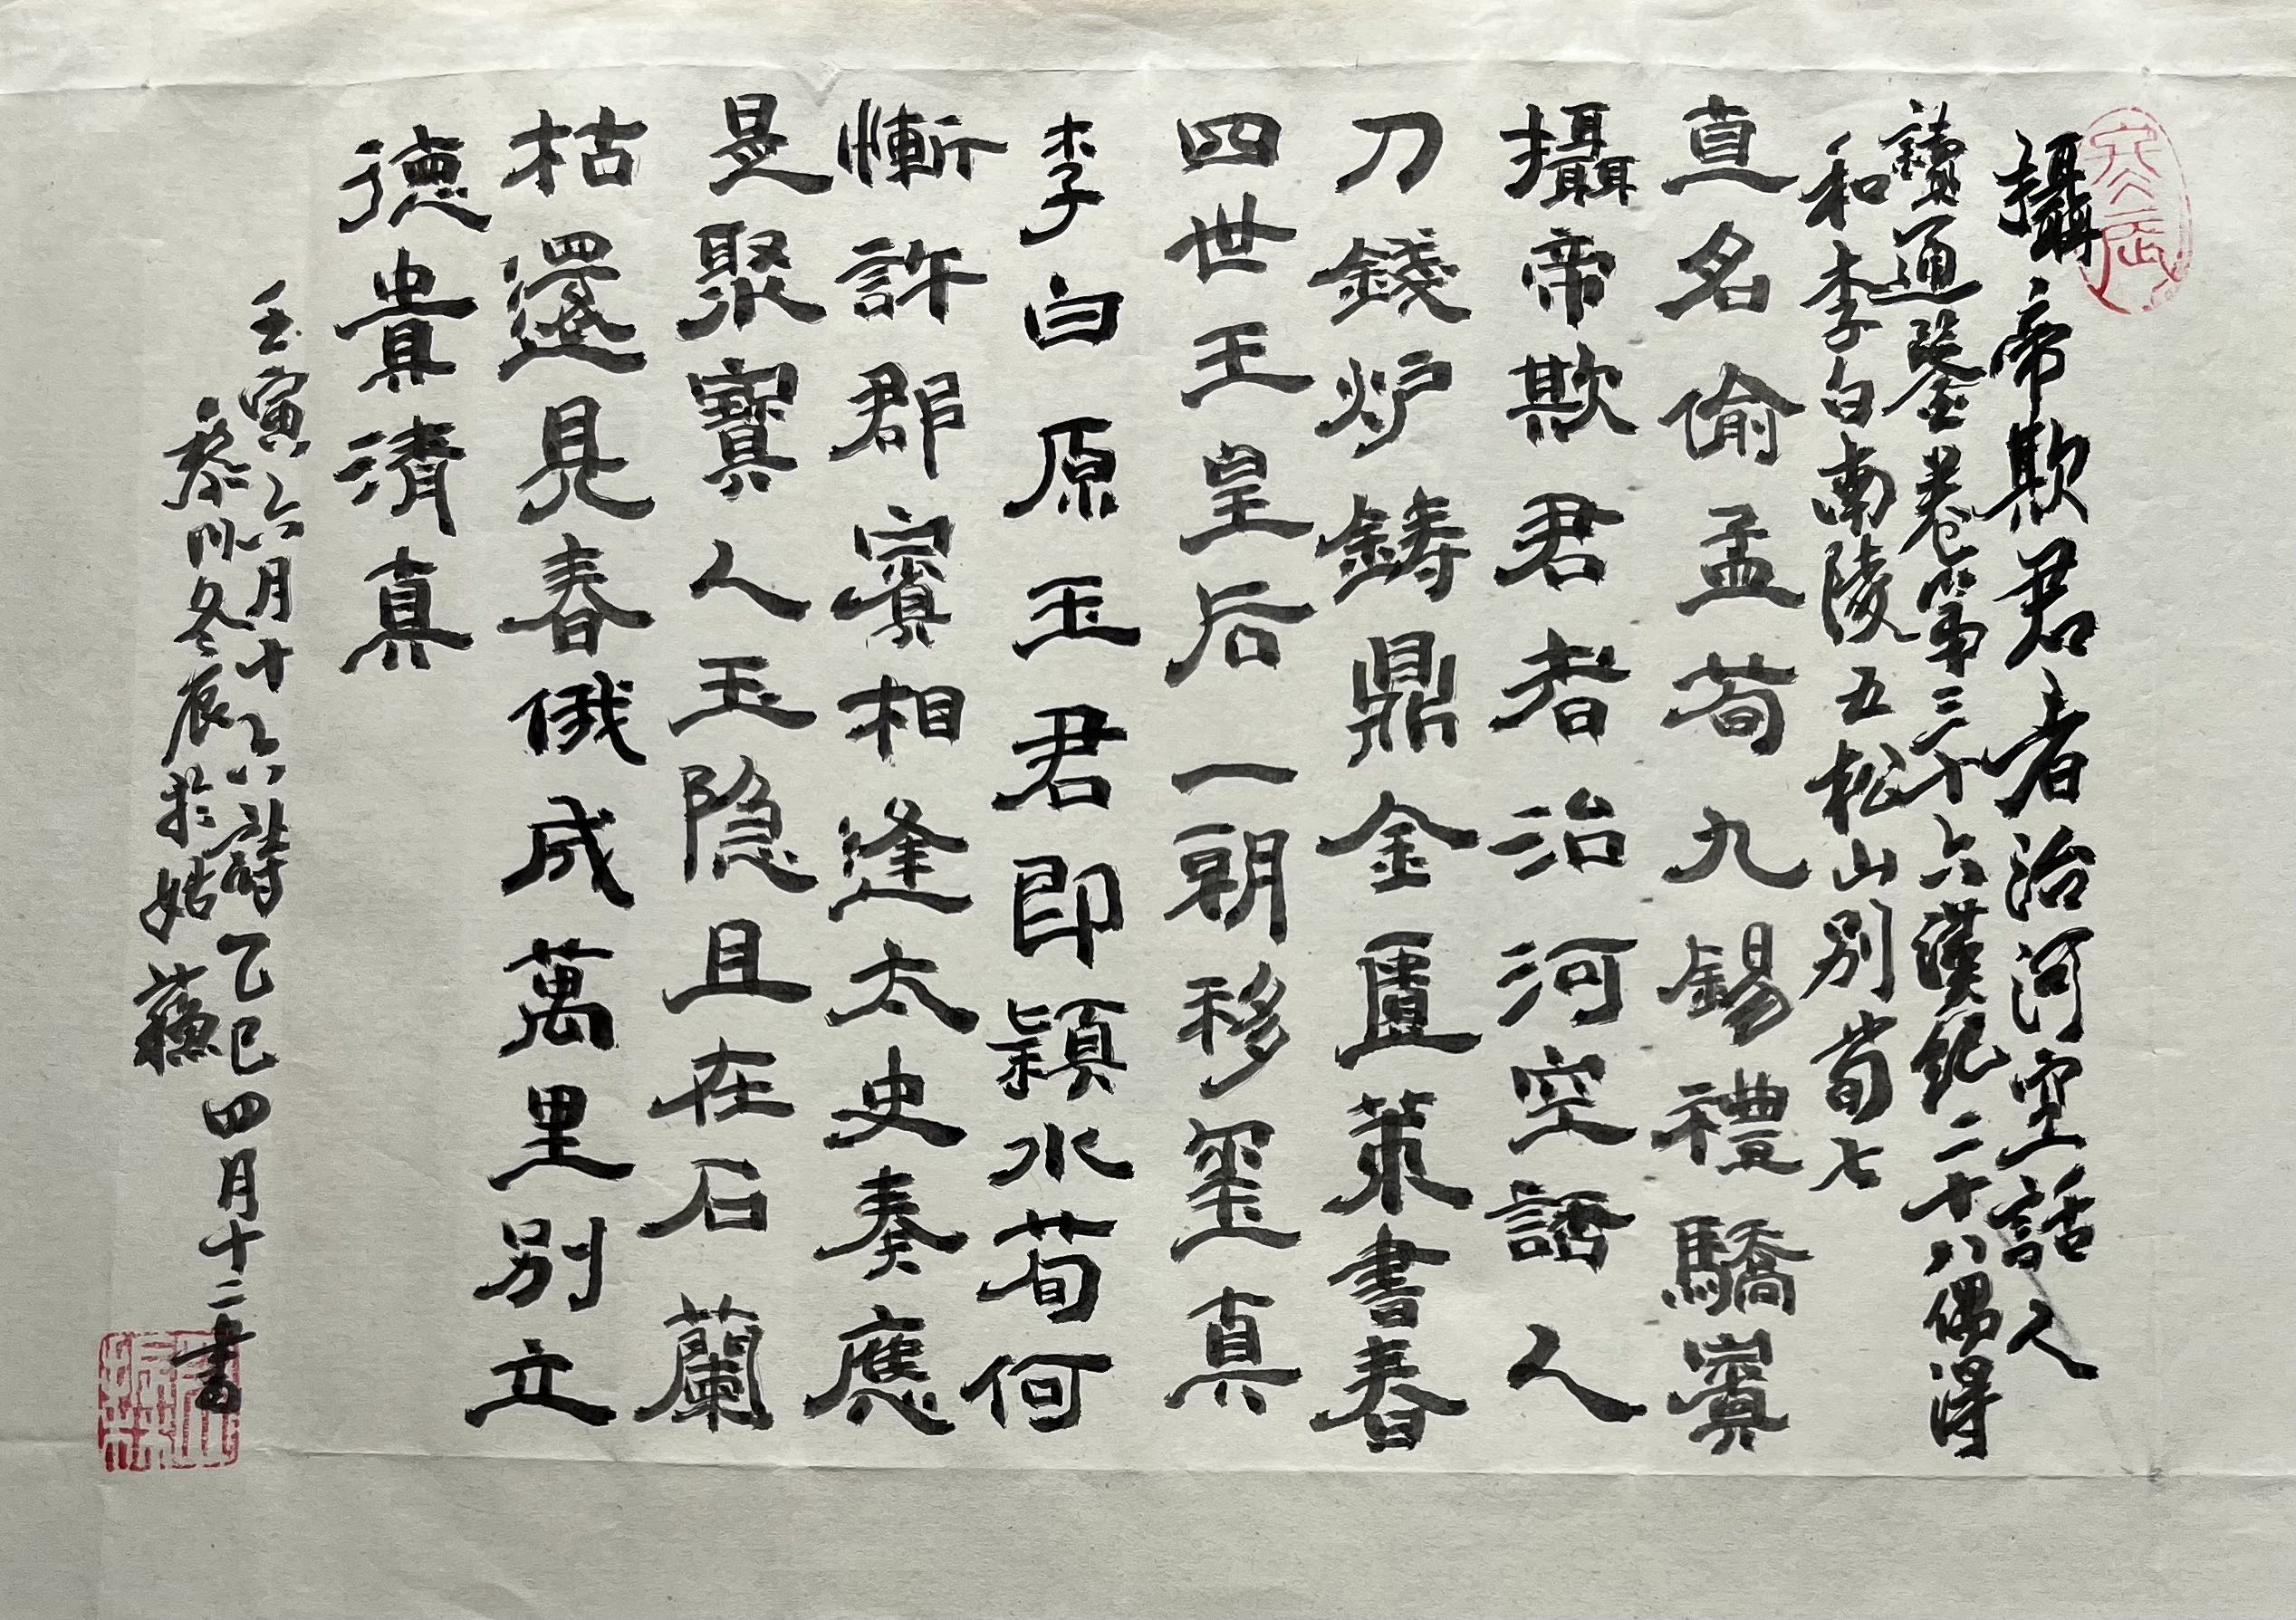 攝帝欺君者治河空話人
讀通鑒卷第三十六漢紀二十八偶得
和李白南陵五松山別荀七
直名偷孟荀九錫禮驕賓
攝帝欺君者治河空語人
刀錢炉鑄鼎金匱策書春
四世王皇后一朝移璽真
李白原玉君即潁水荀何
慚許郡賓相逢太史奏應
是聚寶人玉隐且在石蘭
枯還見春俄成萬里別立
德貴清真
壬寅六月十六詩乙巳四月十二書
黎川冬辰於姑蘇